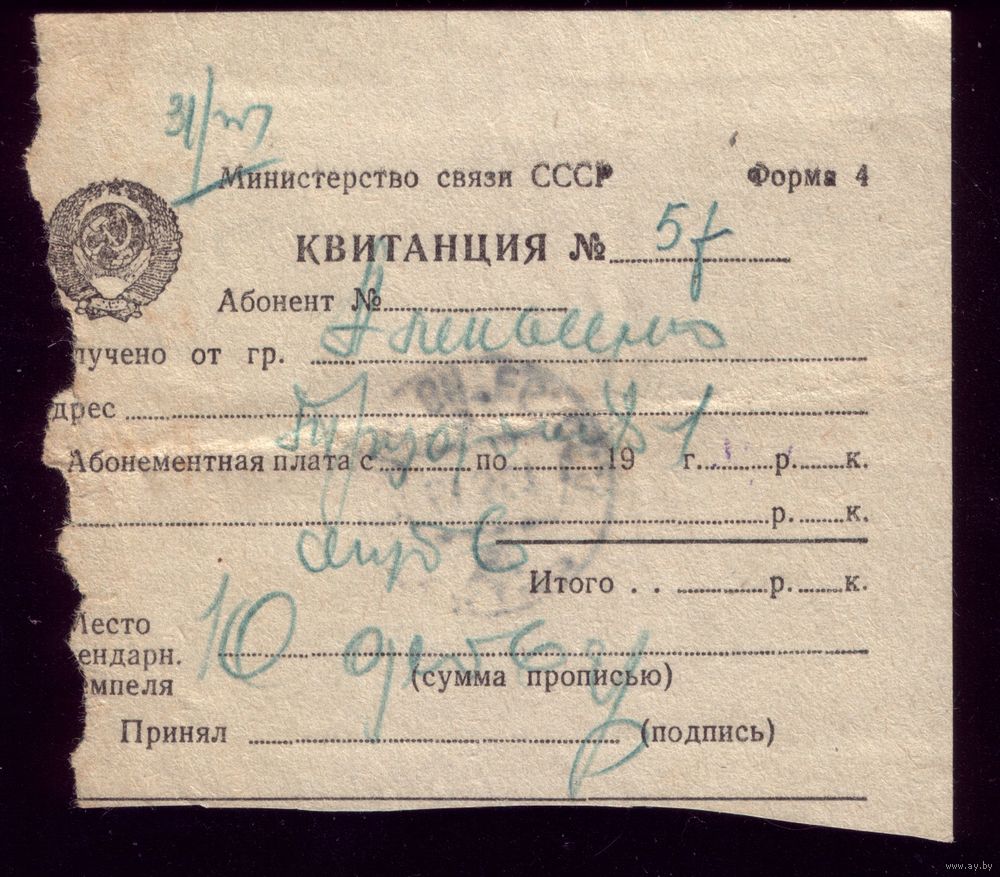 31/VII
Министерство связи СССР Форма 4
КВИТАНЦИЯ № 57
Абонент №
лучено от гр.
дрес
1
Абонементная плата с по 19 г. р. к.
р. к.
6
Итого . . р. к.
Место
ендарн. 10
емпеля (сумма прописью)
Принял (подпись)
www.ay.by